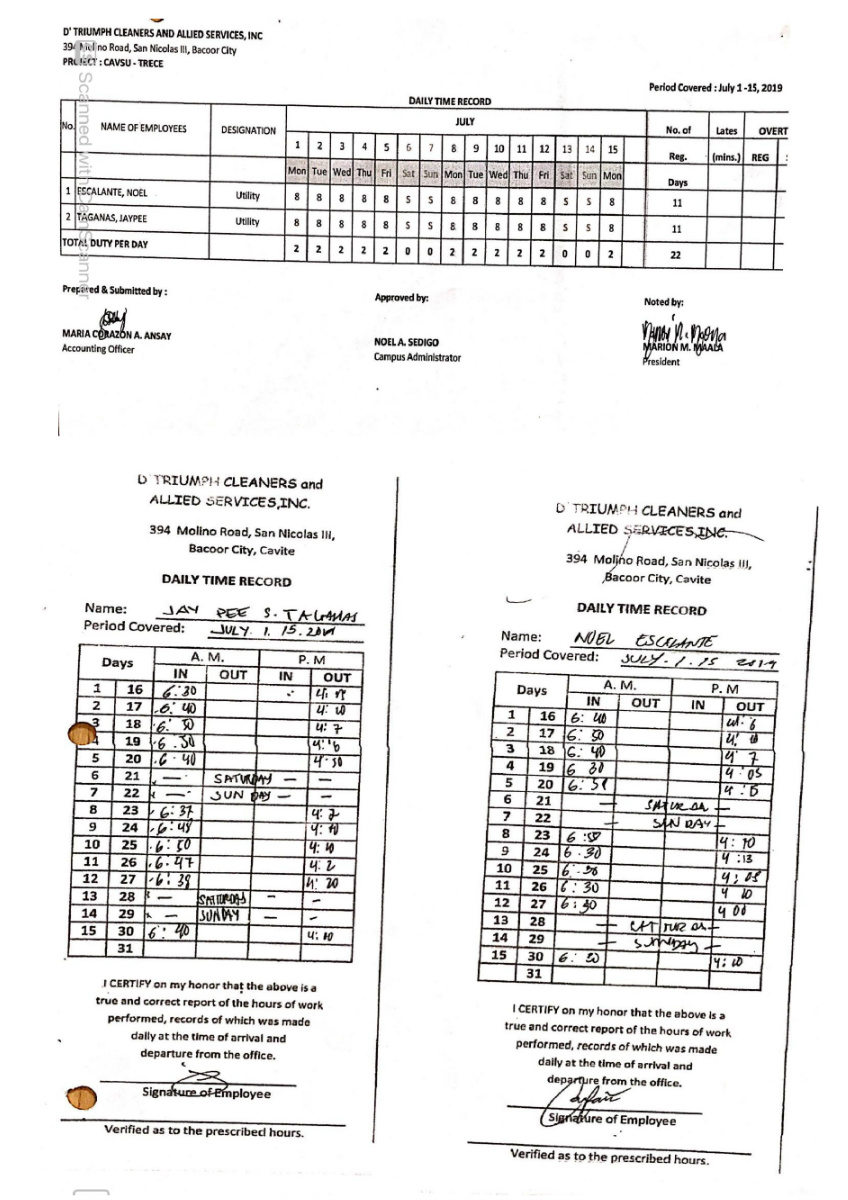 D' TRIUMPH CLEANERS AND ALLIED SERVICES, INC
394 Molino Road, San Nicolas III, Bacoor City
PROJECT : CAVSU - TRECE
Scanned with CamScanner
Period Covered : July 1 -15, 2019
DAILY TIME RECORD
No. NAME OF EMPLOYEES DESIGNATION JULY No. of Lates OVERT
1 2 3 4 5 6 7 8 9 10 11 12 13 14 15 Reg. (mins.) REG
Mon Tue Wed Thu Fri Sat Sun Mon Tue Wed Thu Fri Sat Sun Mon Days
1 ESCALANTE, NOEL Utility 8 8 8 8 8 S S 8 8 8 8 8 S S 8 11
2 TAGANAS, JAYPEE Utility 8 8 8 8 8 S S 8 8 8 8 8 S S 8 11
TOTAL DUTY PER DAY 2 2 2 2 2 0 0 2 2 2 2 2 0 0 2 22
Prepared & Submitted by :
MARIA CORAZON A. ANSAY
Accounting Officer
Approved by:
NOEL A. SEDIGO
Campus Administrator
Noted by:
MARION M. MAALA
President
D' TRIUMPH CLEANERS and
ALLIED SERVICES,INC.
394 Molino Road, San Nicolas III,
Bacoor City, Cavite
DAILY TIME RECORD
Name: JAY PEE S. TAGANAS
Period Covered: JULY. 1. 15.
Days A. M. P. M
IN OUT IN OUT
1 16 6:30
2 17 6:40 4:10
3 18 6:50 4:7
4 19 6.50
5 20 6.40 4.50
6 21 — SATURDAY — —
7 22 — SUNDAY — —
8 23 6:37 4:2
9 24 6:48 4:10
10 25 6:50 4:10
11 26 6:47 4:2
12 27 6:38 4:20
13 28 — SATURDAY - -
14 29 — SUNDAY — -
15 30 6:40 4:10
31
I CERTIFY on my honor that the above is a
true and correct report of the hours of work
performed, records of which was made
daily at the time of arrival and
departure from the office.
Signature of Employee
Verified as to the prescribed hours.
D' TRIUMPH CLEANERS and
ALLIED SERVICES,INC.
394 Molino Road, San Nicolas III,
Bacoor City, Cavite
DAILY TIME RECORD
Name: NOEL ESCALANTE
Period Covered: JULY-1.15 2019
Days A. M. P. M
IN OUT IN OUT
1 16 6:40
2 17 6:50 4:10
3 18 6:40 4 7
4 19 6 30 4.05
5 20
6 21 —
7 22 — SUNDAY —
8 23 4:10
9 24 6.30 4:13
10 25
11 26 6:30 4 10
12 27 6:30 4 00
13 28 —
14 29 — SUNDAY —
15 30 4:10
31
I CERTIFY on my honor that the above is a
true and correct report of the hours of work
performed, records of which was made
daily at the time of arrival and
departure from the office.
Signature of Employee
Verified as to the prescribed hours.